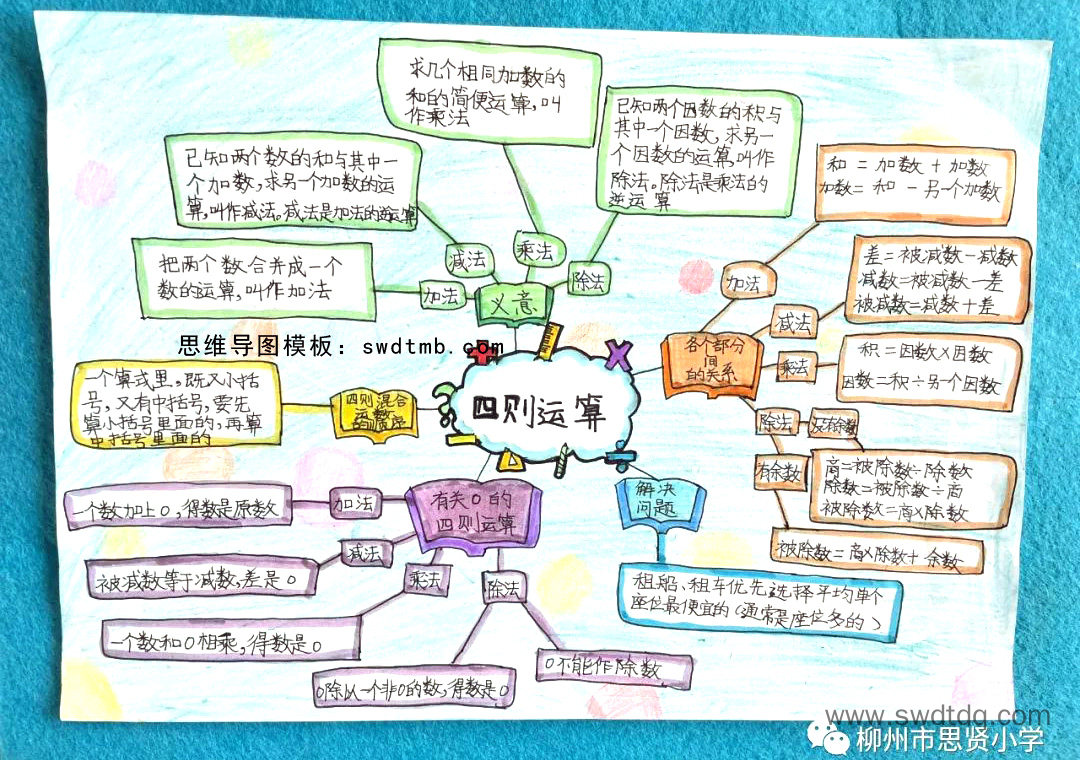 求几个相同加数的
和的简便运算,叫
作乘法
已知两个因数的积与
其中一个因数,求另一
个因数的运算,叫作
除法。除法是乘法的
逆运算
已知两个数的和与其中一
个加数,求另一个加数的运
算,叫作减法。减法是加法的逆运算
把两个数合并成一个
数的运算,叫作加法
减法
乘法
加法
除法
义意
和=加数+加数
加数=和-另一个加数
加法
差=被减数-减数
减数=被减数-差
被减数=减数+差
减法
各个部分
间
的关系
乘法
积=因数×因数
因数=积÷另一个因数
除法
没有余数
有余数
商=被除数÷除数
除数=被除数÷商
被除数=商×除数
被除数=商×除数+余数
思维导图模板:swdtmb.com
四则运算
一个算式里,既又小括
号,又有中括号,要先
算小括号里面的,再算
中括号里面的
四则混合
有关0的
四则运算
加法
一个数加上0,得数是原数
减法
被减数等于减数,差是0
乘法
一个数和0相乘,得数是0
除法
0除以一个非0的数,得数是0
0不能作除数
解决
问题
租船、租车优先选择平均单个
座位最便宜的(通常是座位多的)
www.swdtdq.com
柳州市思贤小学